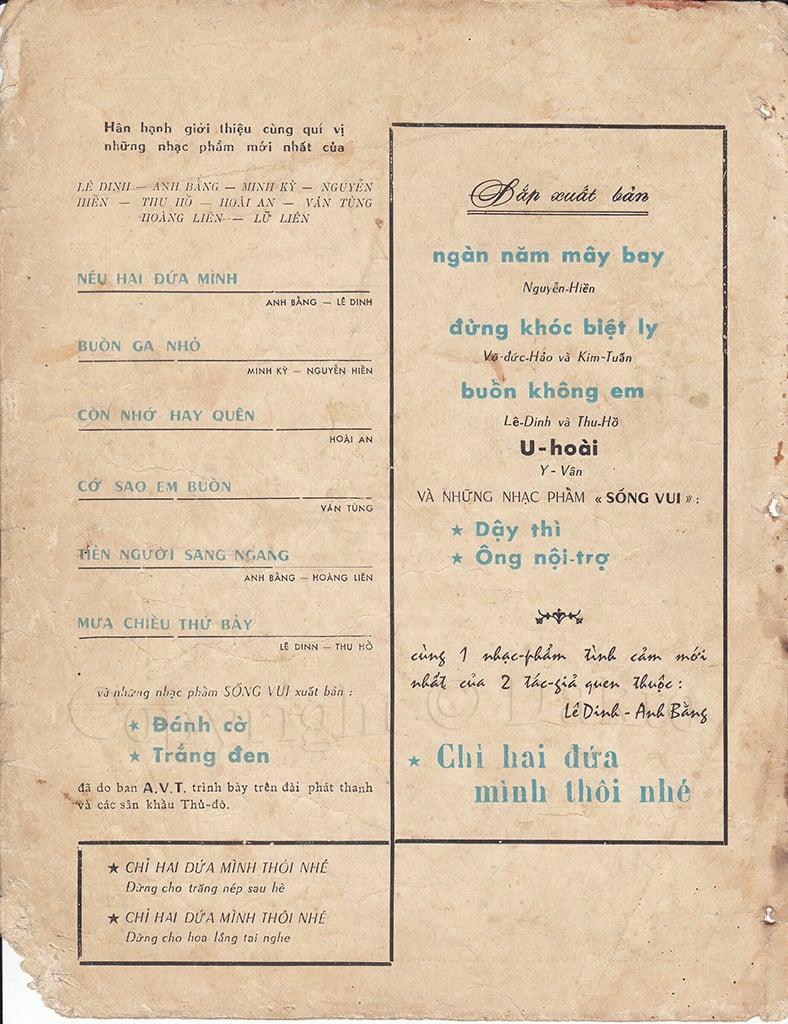 Hân hạnh giới thiệu cùng quí vị
những nhạc phẩm mới nhất của
LÊ DINH — ANH BẰNG — MINH KỲ — NGUYỄN
HIỀN — THU HỒ — HOÀI AN — VĂN TÙNG
HOÀNG LIÊN — LỮ LIÊN
NẾU HAI ĐỨA MÌNH
ANH BẰNG — LÊ DINH
BUỒN GA NHỎ
MINH KỲ — NGUYỄN HIỀN
CÒN NHỚ HAY QUÊN
HOÀI AN
CỚ SAO EM BUỒN
VĂN TÙNG
TIỄN NGƯỜI SANG NGANG
ANH BẰNG — HOÀNG LIÊN
MƯA CHIỀU THỨ BẢY
LÊ DINN — THU HỒ
và những nhạc phẩm SỐNG VUI xuất bản :
★ Đánh cờ
★ Trắng đen
đã do ban A.V.T. trình bày trên đài phát thanh
và các sân khấu Thủ-đô.
★ CHỈ HAI DỨA MÌNH THÔI NHÉ
Đừng cho trăng nép sau hè
★ CHỈ HAI DỨA MÌNH THÔI NHÉ
Đừng cho hoa lắng tai nghe
Sắp xuất bản
ngàn năm mây bay
Nguyễn-Hiền
đừng khóc biệt ly
Võ-đức-Hảo và Kim-Tuấn
buồn không em
Lê-Dinh và Thu-Hồ
U-hoài
Y - Vân
VÀ NHỮNG NHẠC PHẨM « SỐNG VUI » :
★ Dậy thì
★ Ông nội-trợ
cùng 1 nhạc-phẩm tình cảm mới
nhất của 2 tác-giả quen thuộc :
Lê Dinh - Anh Bằng
★ Chỉ hai đứa
mình thôi nhé